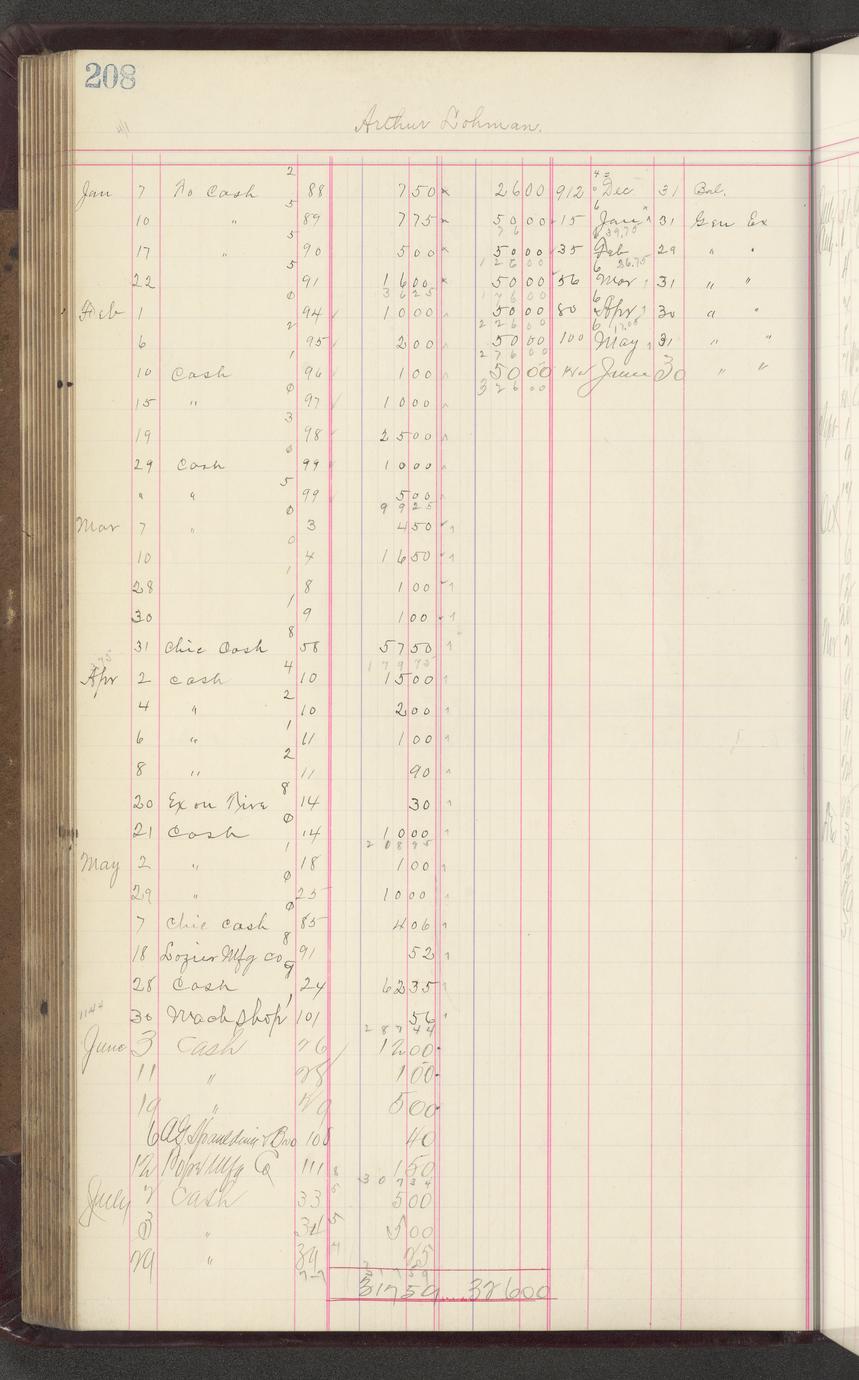 208
Arthur Lohman.
Jan 7 To Cash 88 7 50 26 00 912 Dec 31 Bal.
10 " 89 7 75 50 00 15 Jan 31 Gen Ex
17 " 90 5 00 50 00 35 Feb 29 " "
22 91 16 00 50 00 56 Mar 31 " "
Feb 1 94 10 00 50 00 80 Apr 30 " "
6 95 2 00 50 00 100 May 31 " "
10 Cash 96 1 00 50 00 June 30 " "
15 " 97 10 00
19 98 25 00
29 Cash 99 10 00
" " 99 5 00
99 25
Mar 7 " 3 4 50
10 4 16 50
28 8 1 00
30 9 1 00
31 Chic Cash 58 57 50
179 75
Apr 2 Cash 10 15 00
4 " 10 2 00
6 " 11 1 00
8 " 11 90
20 Ex on 14 30
21 Cash 14 10 00
208 95
May 2 " 18 1 00
29 " 25 10 00
7 Chic Cash 85 4 06
18 Lozier Mfg Co 91 52
28 Cash 24 62 35
30 Mach Shop 101 56
287 44
June 3 Cash 26 12 00
11 " 28 1 00
19 " 29 5 00
6 A G Spaulding & Bro 108 40
12 Pope Mfg Co 111 1 50
307 34
July 2 Cash 33 5 00
3 " 34 5 00
29 " 39 25
317 59 326 00